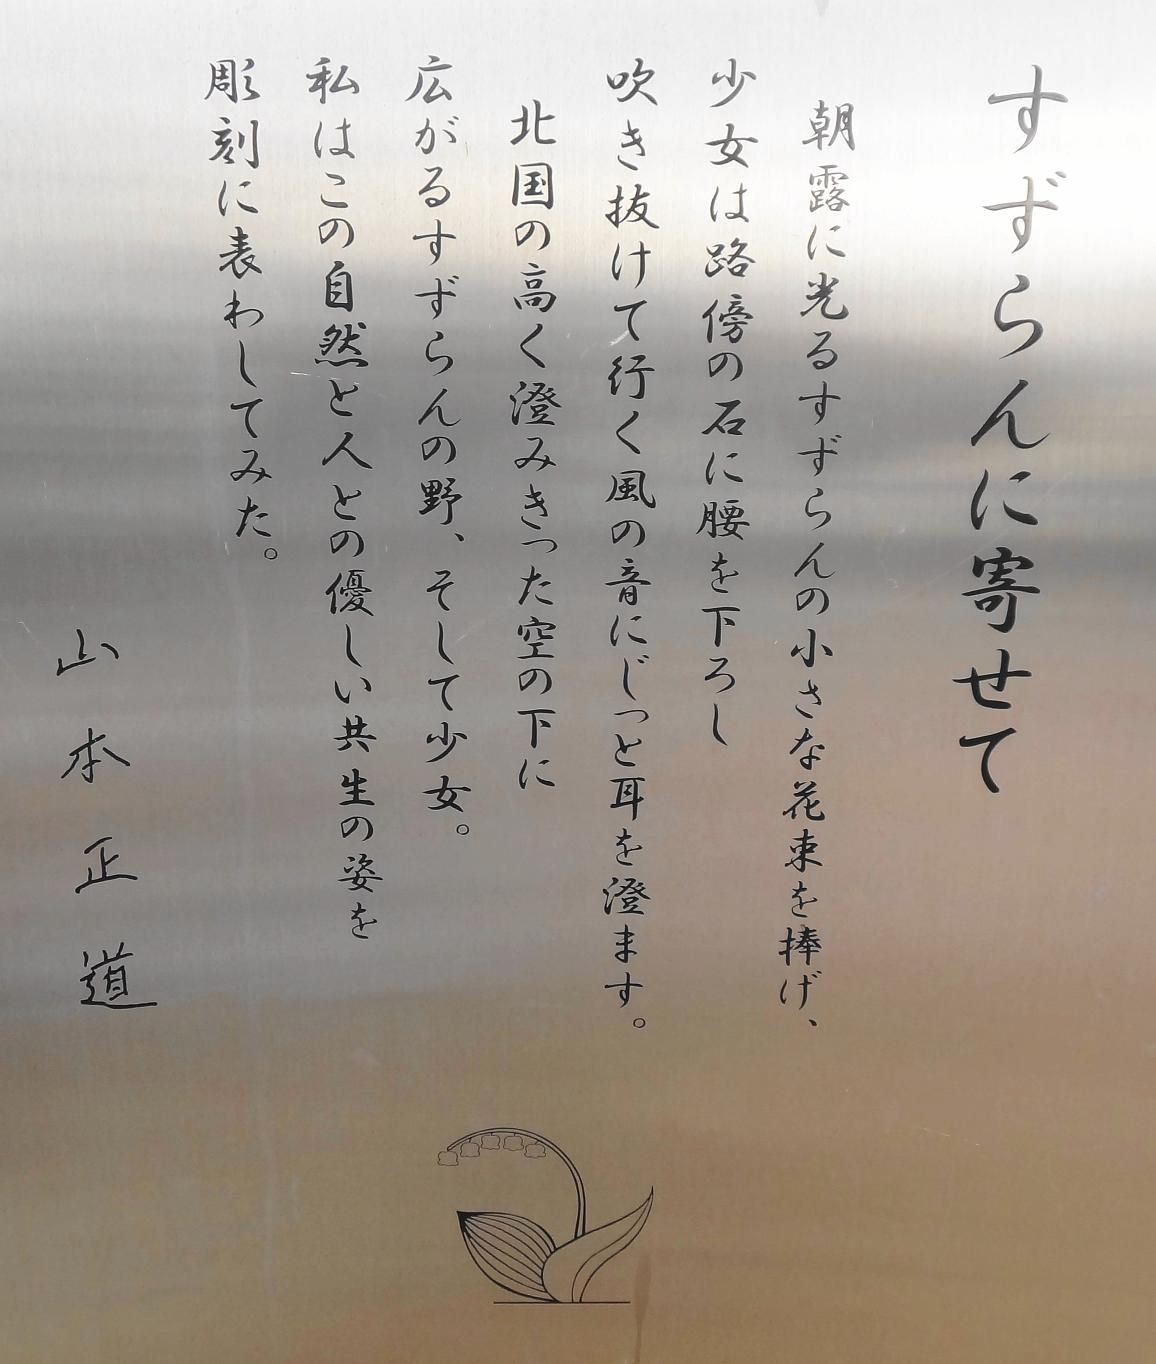 すずらんに寄せて
朝露に光るすずらんの小さな花束を捧げ、
少女は路傍の石に腰を下ろし
吹き抜けて行く風の音にじっと耳を澄ます。
北国の高く澄みきった空の下に
広がるすずらんの野、そして少女。
私はこの自然と人との優しい共生の姿を
彫刻に表わしてみた。
山本正道